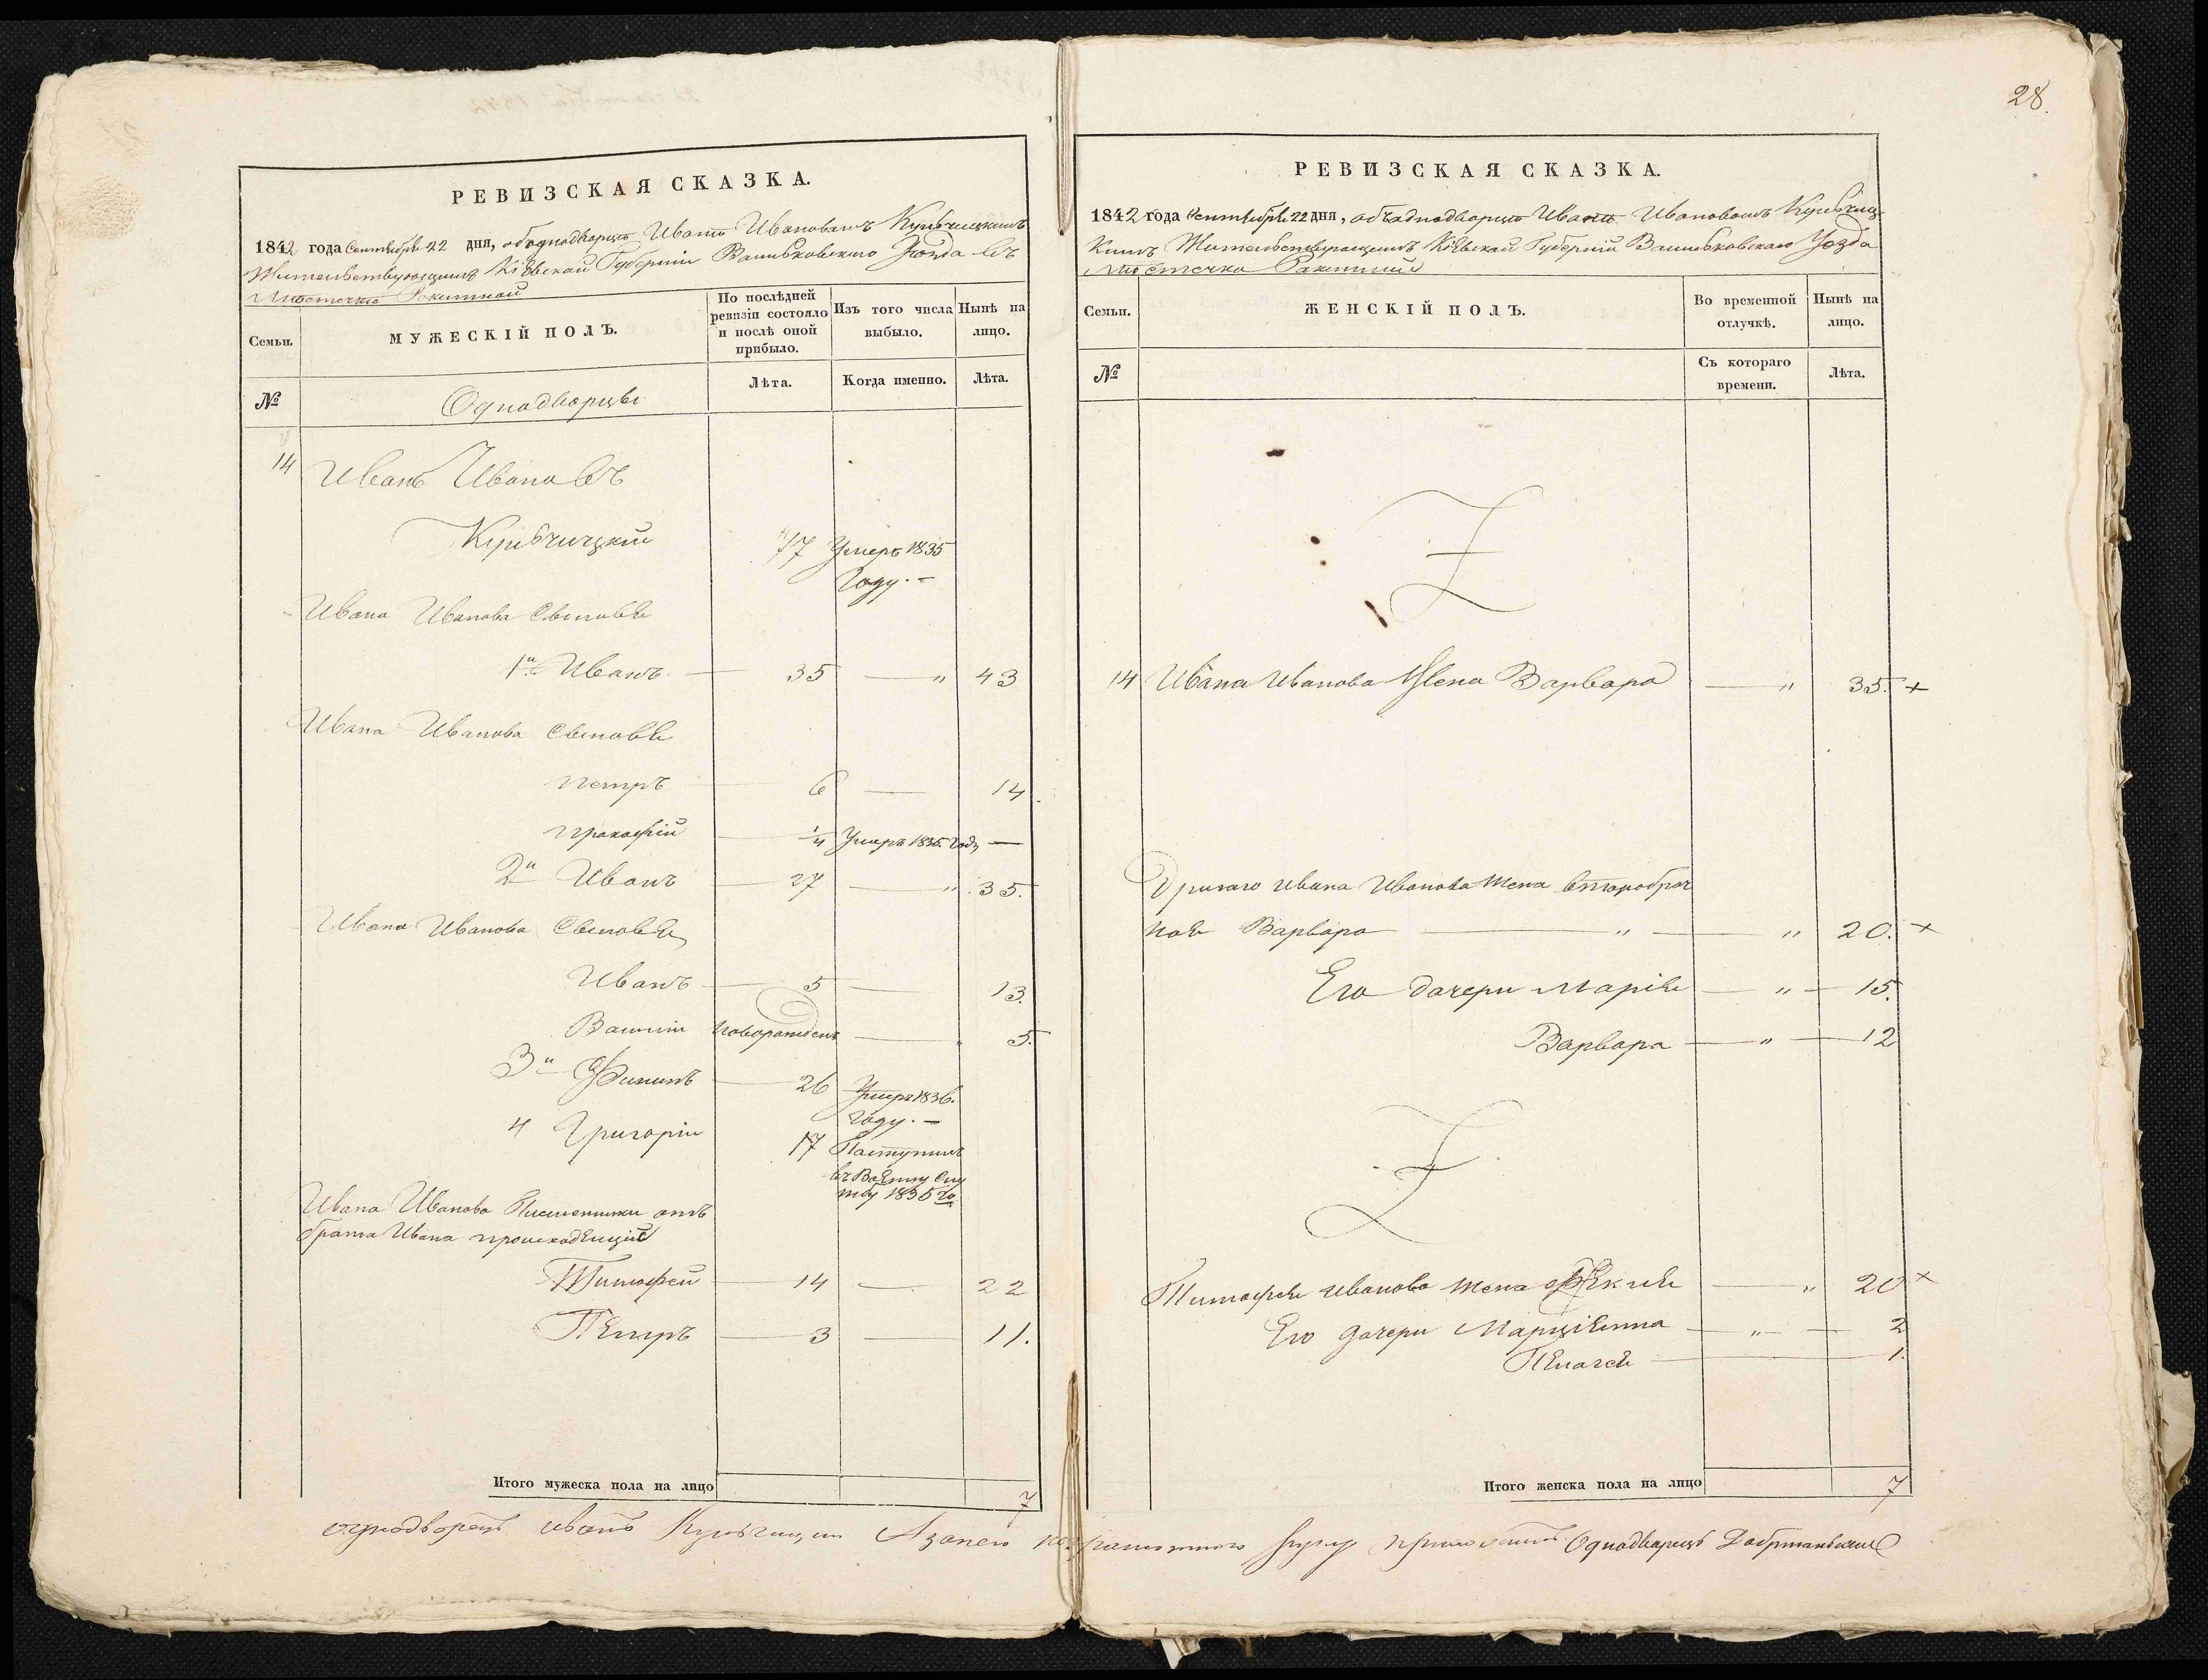 28.
РЕВИЗСКАЯ СКАЗКА.
1842 года Сентября 22 дня, объ однодворце Иване Ивановомъ Кульчицкимъ
Жительствующимъ Кіевской Губерніи Васильковскаго Уезда въ
Местечке Ракитной
Семьи.
МУЖЕСКІЙ ПОЛЪ.
По послѣдней
ревизіи состояло
и послѣ оной
прибыло.
Изъ того числа
выбыло.
Нынѣ на
лицо.
№
Однодворцы
Лѣта.
Когда именно.
Лѣта.
14 Иванъ Ивановъ
Кульчицкий 47 Умеръ 1835
Году. -
Ивана Иванова Сыновья
1й Иванъ 35 — " 43
Ивана Иванова Сыновья
Петръ 6 — 14.
Прокофій 1/4 Умеръ 1835. году —
2й Иванъ 27 — " 35.
Ивана Иванова Сыновья
Иванъ 5 — 13.
Василій Новорожденъ — " 5.
3й Филипъ 26 Умеръ 1836.
Году. -
4 Григорій 17 Поступилъ
въ Военну Слу
жбу 1835 го
Ивана Иванова Племенники отъ
брата Ивана происходящие
Тимофей 14 — 22
Петръ 3 — 11.
Итого мужеска пола на лицо 7
РЕВИЗСКАЯ СКАЗКА.
1842 года Сентября 22 дня, объ однодворце Иване Ивановомъ Кульчиц
кимъ Жительствующимъ Кіевской Губерніи Васильковскаго Уезда
Местечка Ракитной
Семьи.
ЖЕНСКІЙ ПОЛЪ.
Во временной
отлучкѣ.
Нынѣ на
лицо.
№
Съ котораго
времени.
Лѣта.
14 Ивана Иванова Жена Варвара — " 35. +
Другаго Ивана Иванова Жена второбрач
ная Варвара — " — " 20. +
Его дочери Марія — " — 15.
Варвара — " — 12
Тимофея Иванова жена — " 20 +
Его дочери Марціянна — " — 2
Пелагея — 1.
Итого женска пола на лицо 7
однодворецъ иванъ Кульчицки А занего неграмотного руку приложилъ Однодворецъ